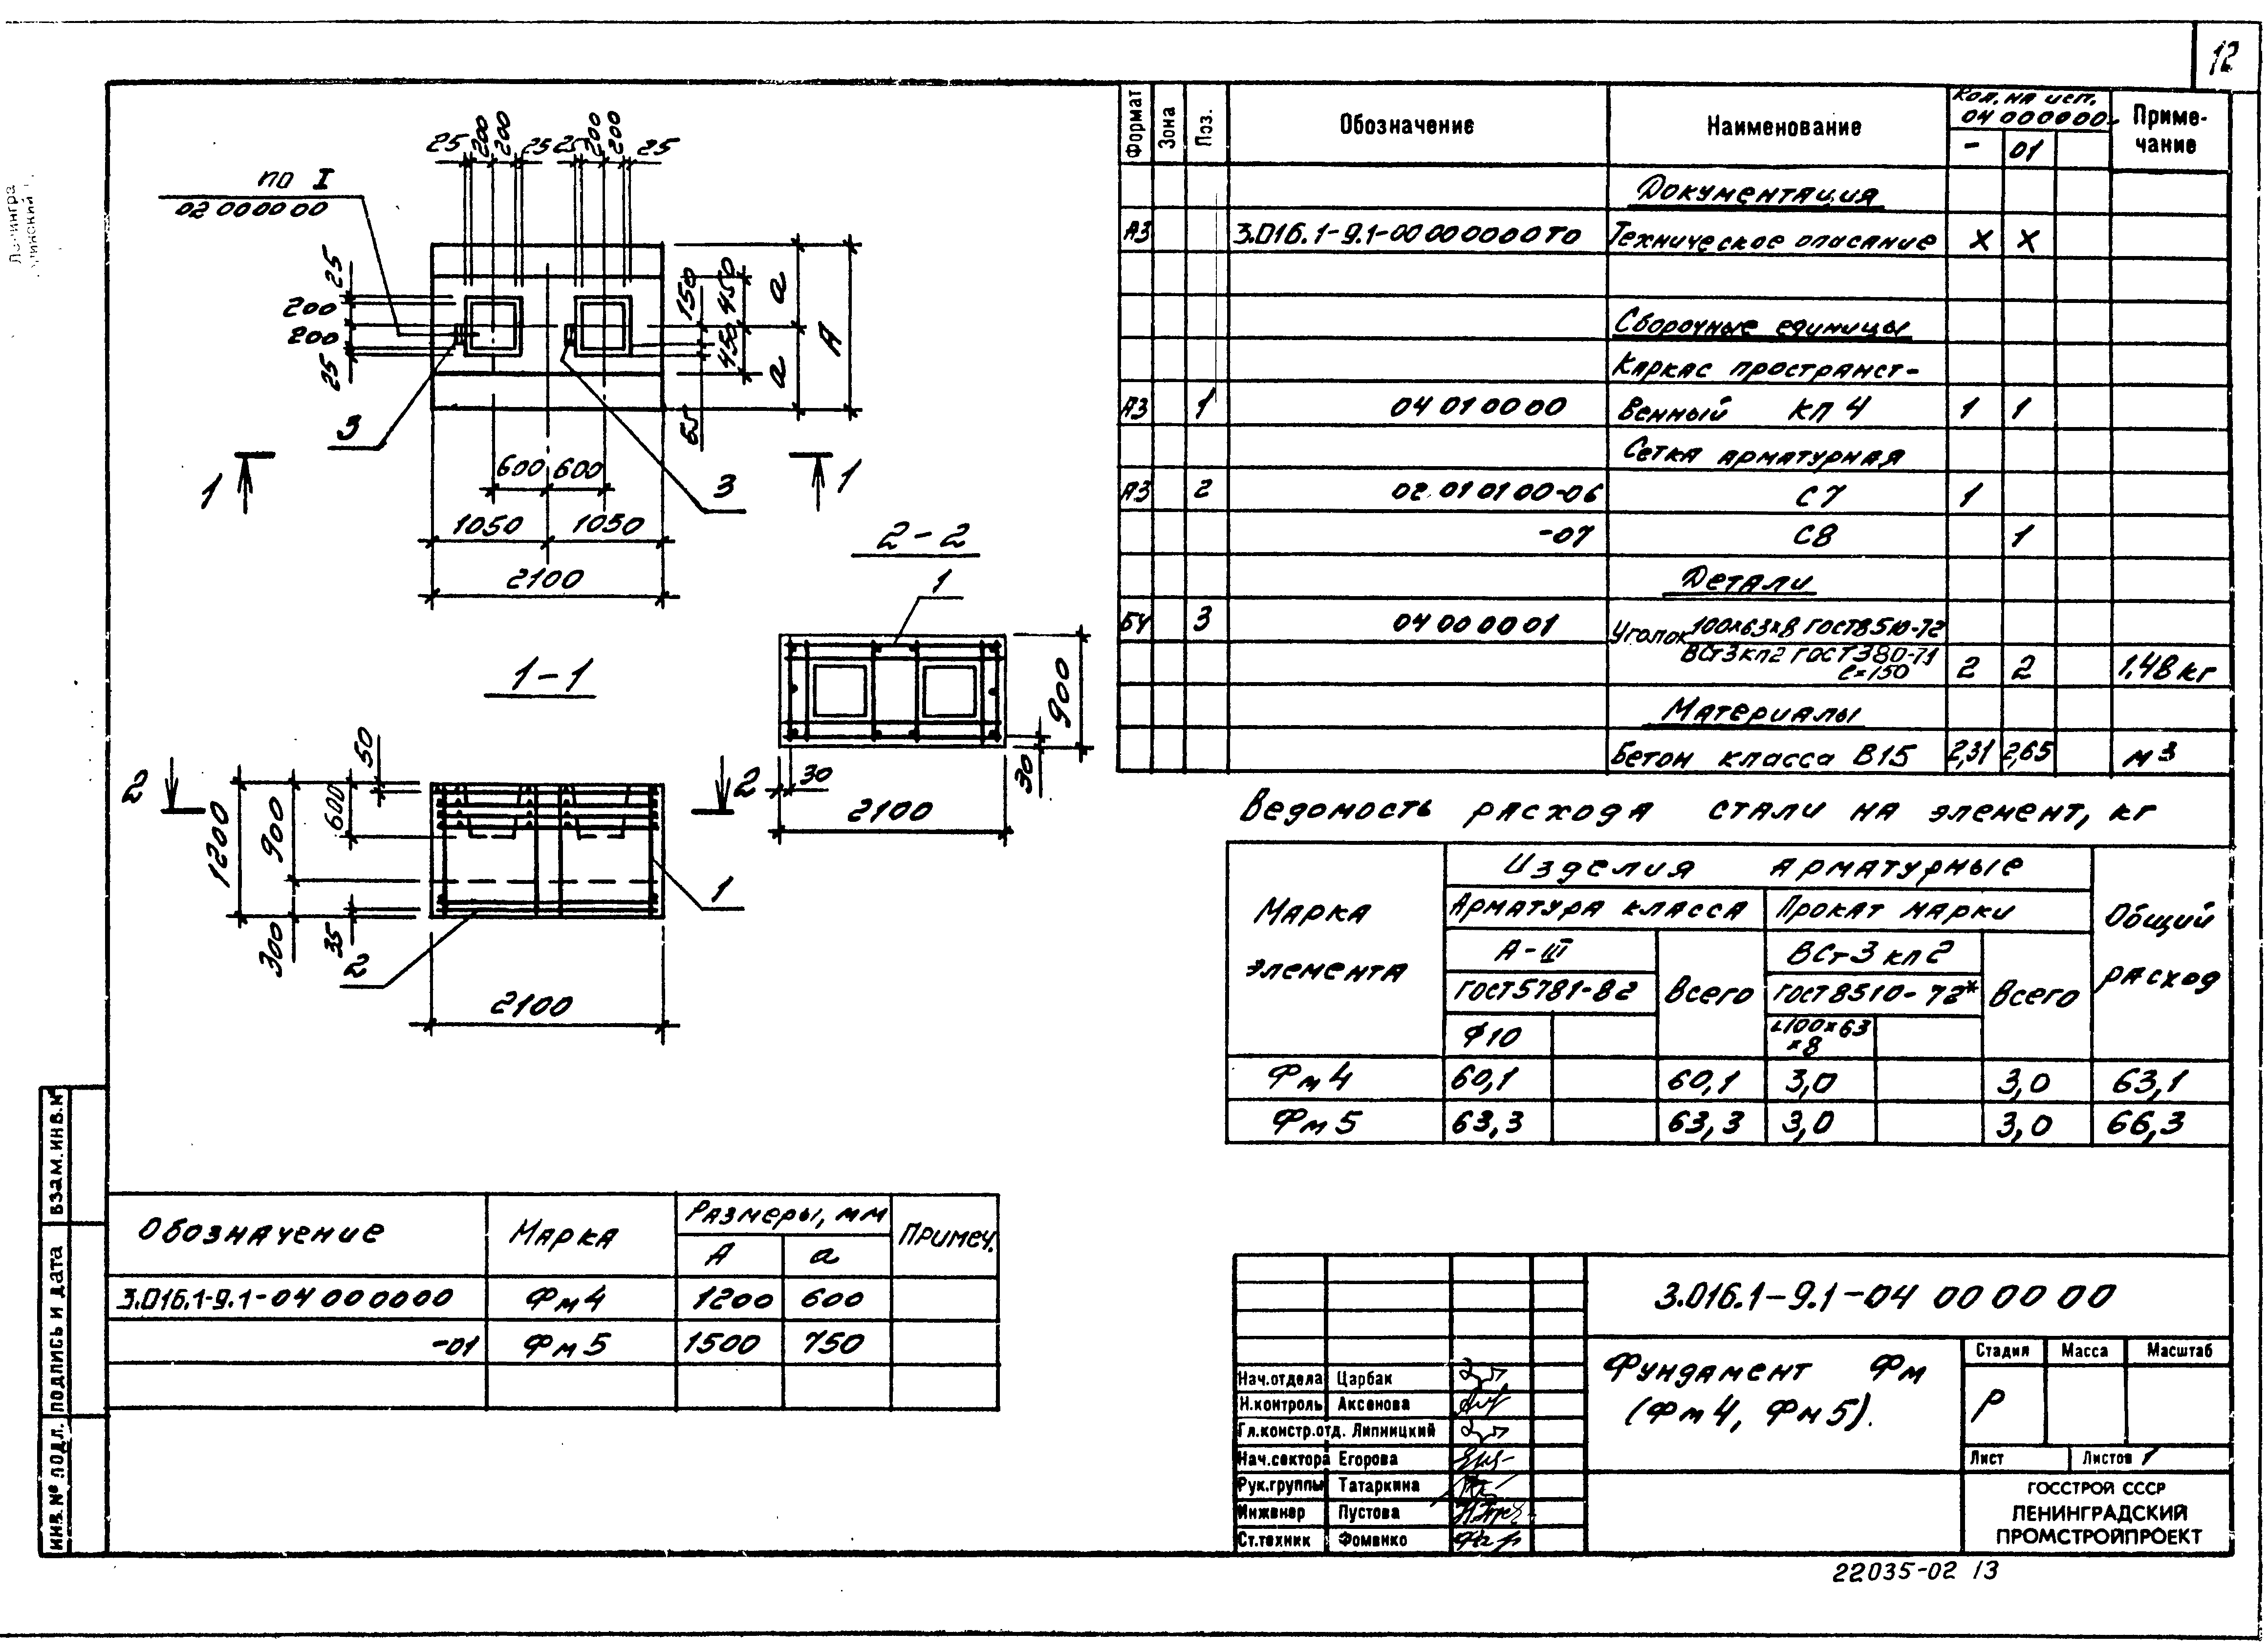 12
по I
02 00 00 00
25 200 200 25 25 200 200 25
25
200
200
25
150 450 a A
450 a
65
3
3
600 600
1 1
1050 1050
2100
2-2
1
900
30
30
2100
1-1
2 2
50
600
900
1200
300
35
2
1
2100
Формат Зона Поз. Обозначение Наименование Кол. на исп. 04 00 00 00- Приме-
чание
- 01
Документация
А3 3.016.1-9.1-00 00 00 00ТО Техническое описание X X
Сборочные единицы
Каркас пространст-
А3 1 04 01 00 00 венный КП 4 1 1
Сетка арматурная
А3 2 02 01 01 00-06 С7 1
-07 С8 1
Детали
БЧ 3 04 00 00 01 Уголок 100×63×8 ГОСТ 8510-72
ВСт3кп2 ГОСТ 380-71
ℓ=150 2 2 1,48 кг
Материалы
Бетон класса В15 2,31 2,65 м3
Ведомость расхода стали на элемент, кг
Марка
элемента
Изделия арматурные
Арматура класса Прокат марки
Общий
расход
А-III ВСт3кп2
ГОСТ 5781-82 Всего ГОСТ 8510-72* Всего
Ф10 ∟100×63
×8
Фм 4 60,1 60,1 3,0 3,0 63,1
Фм 5 63,3 63,3 3,0 3,0 66,3
Обозначение Марка Размеры, мм Примеч.
А а
3.016.1-9.1-04 00 00 00 Фм 4 1200 600
-01 Фм 5 1500 750
Взам. инв. №
Подпись и дата
Инв. № подл.
3.016.1-9.1-04 00 00 00
Фундамент Фм
(Фм 4, Фм 5).
Стадия Масса Масштаб
Р
Лист Листов 1
Нач.отдела Царбак
Н.контроль Аксенова
Гл.констр.отд. Липницкий
Нач.сектора Егорова
Рук.группы Татаркина
Инженер Пустова
Ст.техник Фоменко
ГОССТРОЙ СССР
ЛЕНИНГРАДСКИЙ
ПРОМСТРОЙПРОЕКТ
22035-02 13